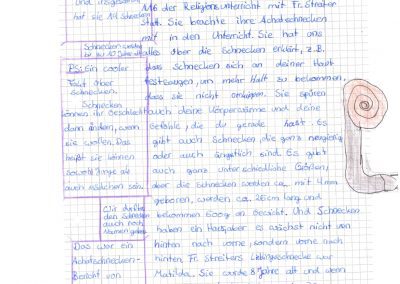 und insgesamt
hat sie 114 Schnecken
Schnecken werden
ca. 8 bis 10 Jahre alt
PS: Ein cooler
Fakt über
Schnecken.
Schnecken
können ihr Geschlecht
dann ändern, wenn
sie wollen. Das
heißt sie können
sowohl Junge als
auch mädchen sein.
Wir durften
den Schnecken
auch noch
Namen geben
Das war ein
Achatschnecken-
Bericht von
N16 der Religionsunterricht mit Fr. Streiter
statt. Sie brachte ihre Achatschnecken
mit in den Unterricht. Sie hat uns
alles über die Schnecken erklärt, z.B.
dass Schnecken sich an deiner Haut
festsaugen, um mehr Halt zu bekommen,
dass sie nicht
Sie spüren
auch deine Körperwärme und deine
Gefühle, die du gerade hast. Es
gibt auch Schnecken, die ganz neugierig
oder auch ängstlich sind. Es gibt
auch ganz unterschiedliche Größen,
aber die Schnecken werden ca. mit 4mm
geboren, werden ca. 26cm lang und
bekommen 600g an Gewicht. Und Schnecken
haben ein Haus, aber es wächst nicht von
hinten nach vorne, sondern vorne nach
hinten. Fr. Streiters Lieblingsschnecke war
Matilda. Sie wurde 8 Jahre alt und